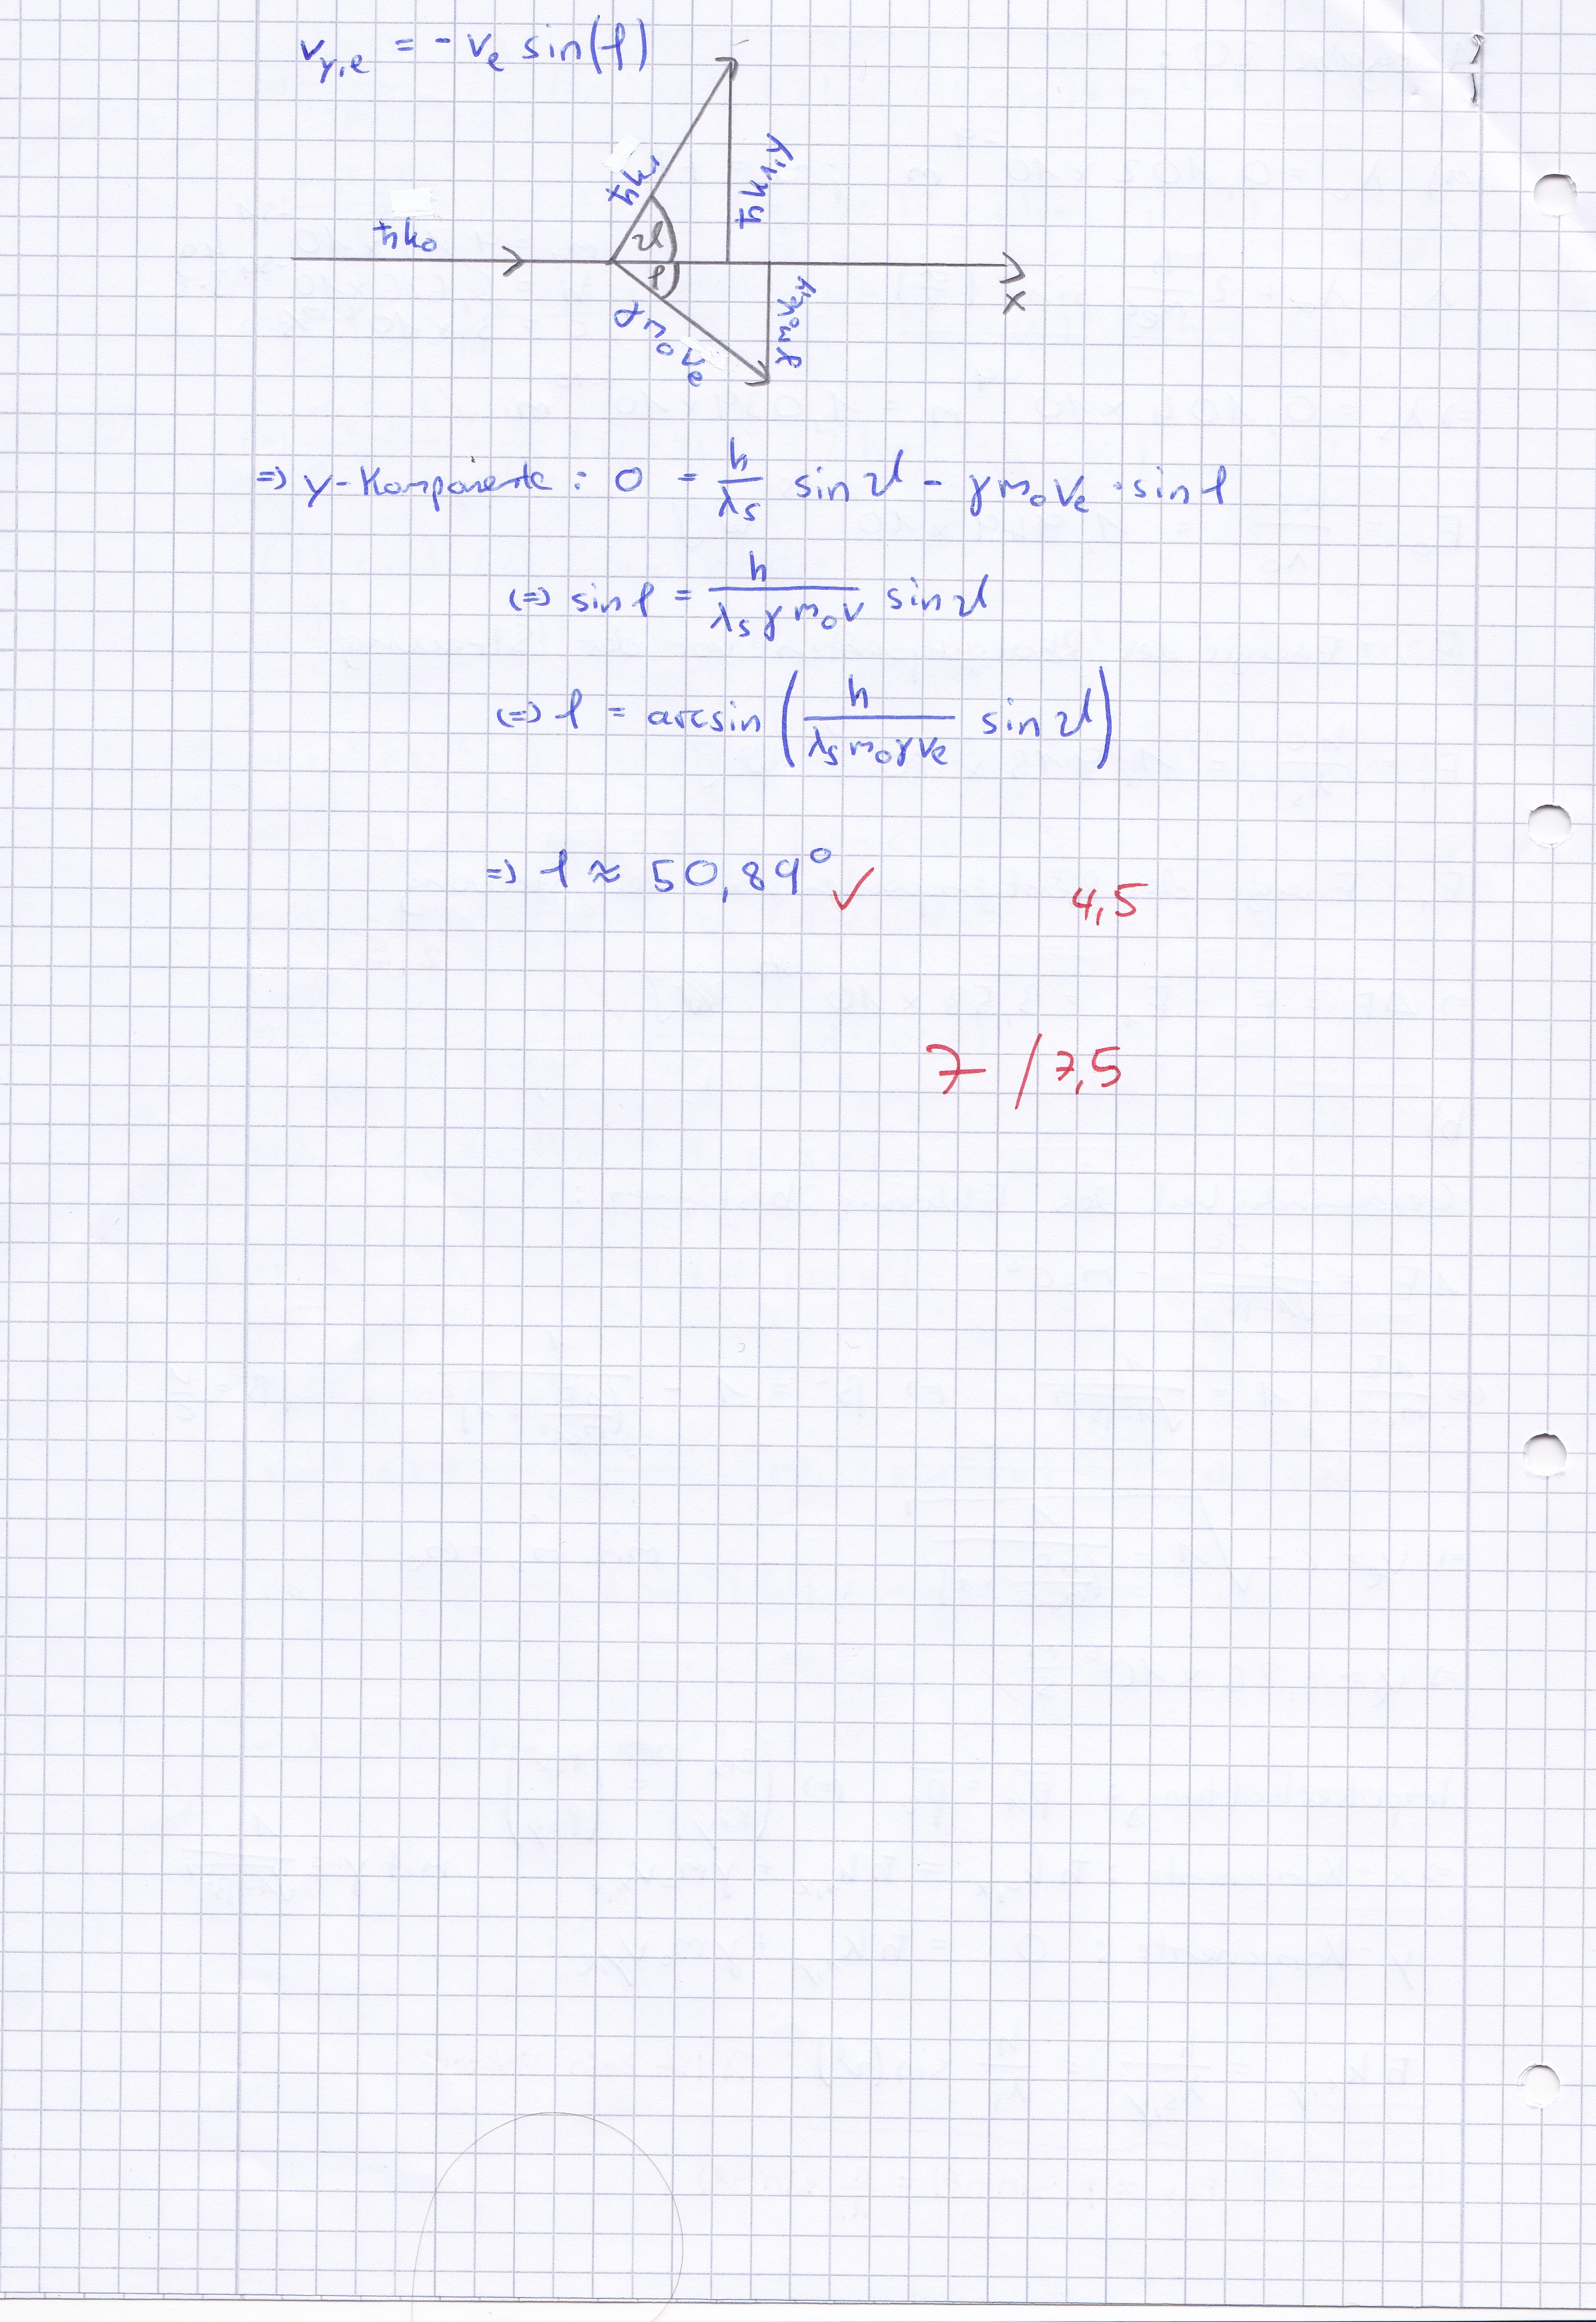 v_{y,e} = - v_e sin(φ)
ħk_1
ħk_{1,y}
ħk_0
ϑ
φ
x
γ m_0 v_e
γ m_0 v_{e,y}
=> y-Komponente : 0 = h/λ_s sin ϑ - γ m_0 v_e · sin φ
(=) sin φ = h/(λ_s γ m_0 v) sin ϑ
(=) φ = arcsin ( h/(λ_s m_0 γ v_e) sin ϑ )
=> φ ≈ 50,89° ✓
4,5
7 / 7,5